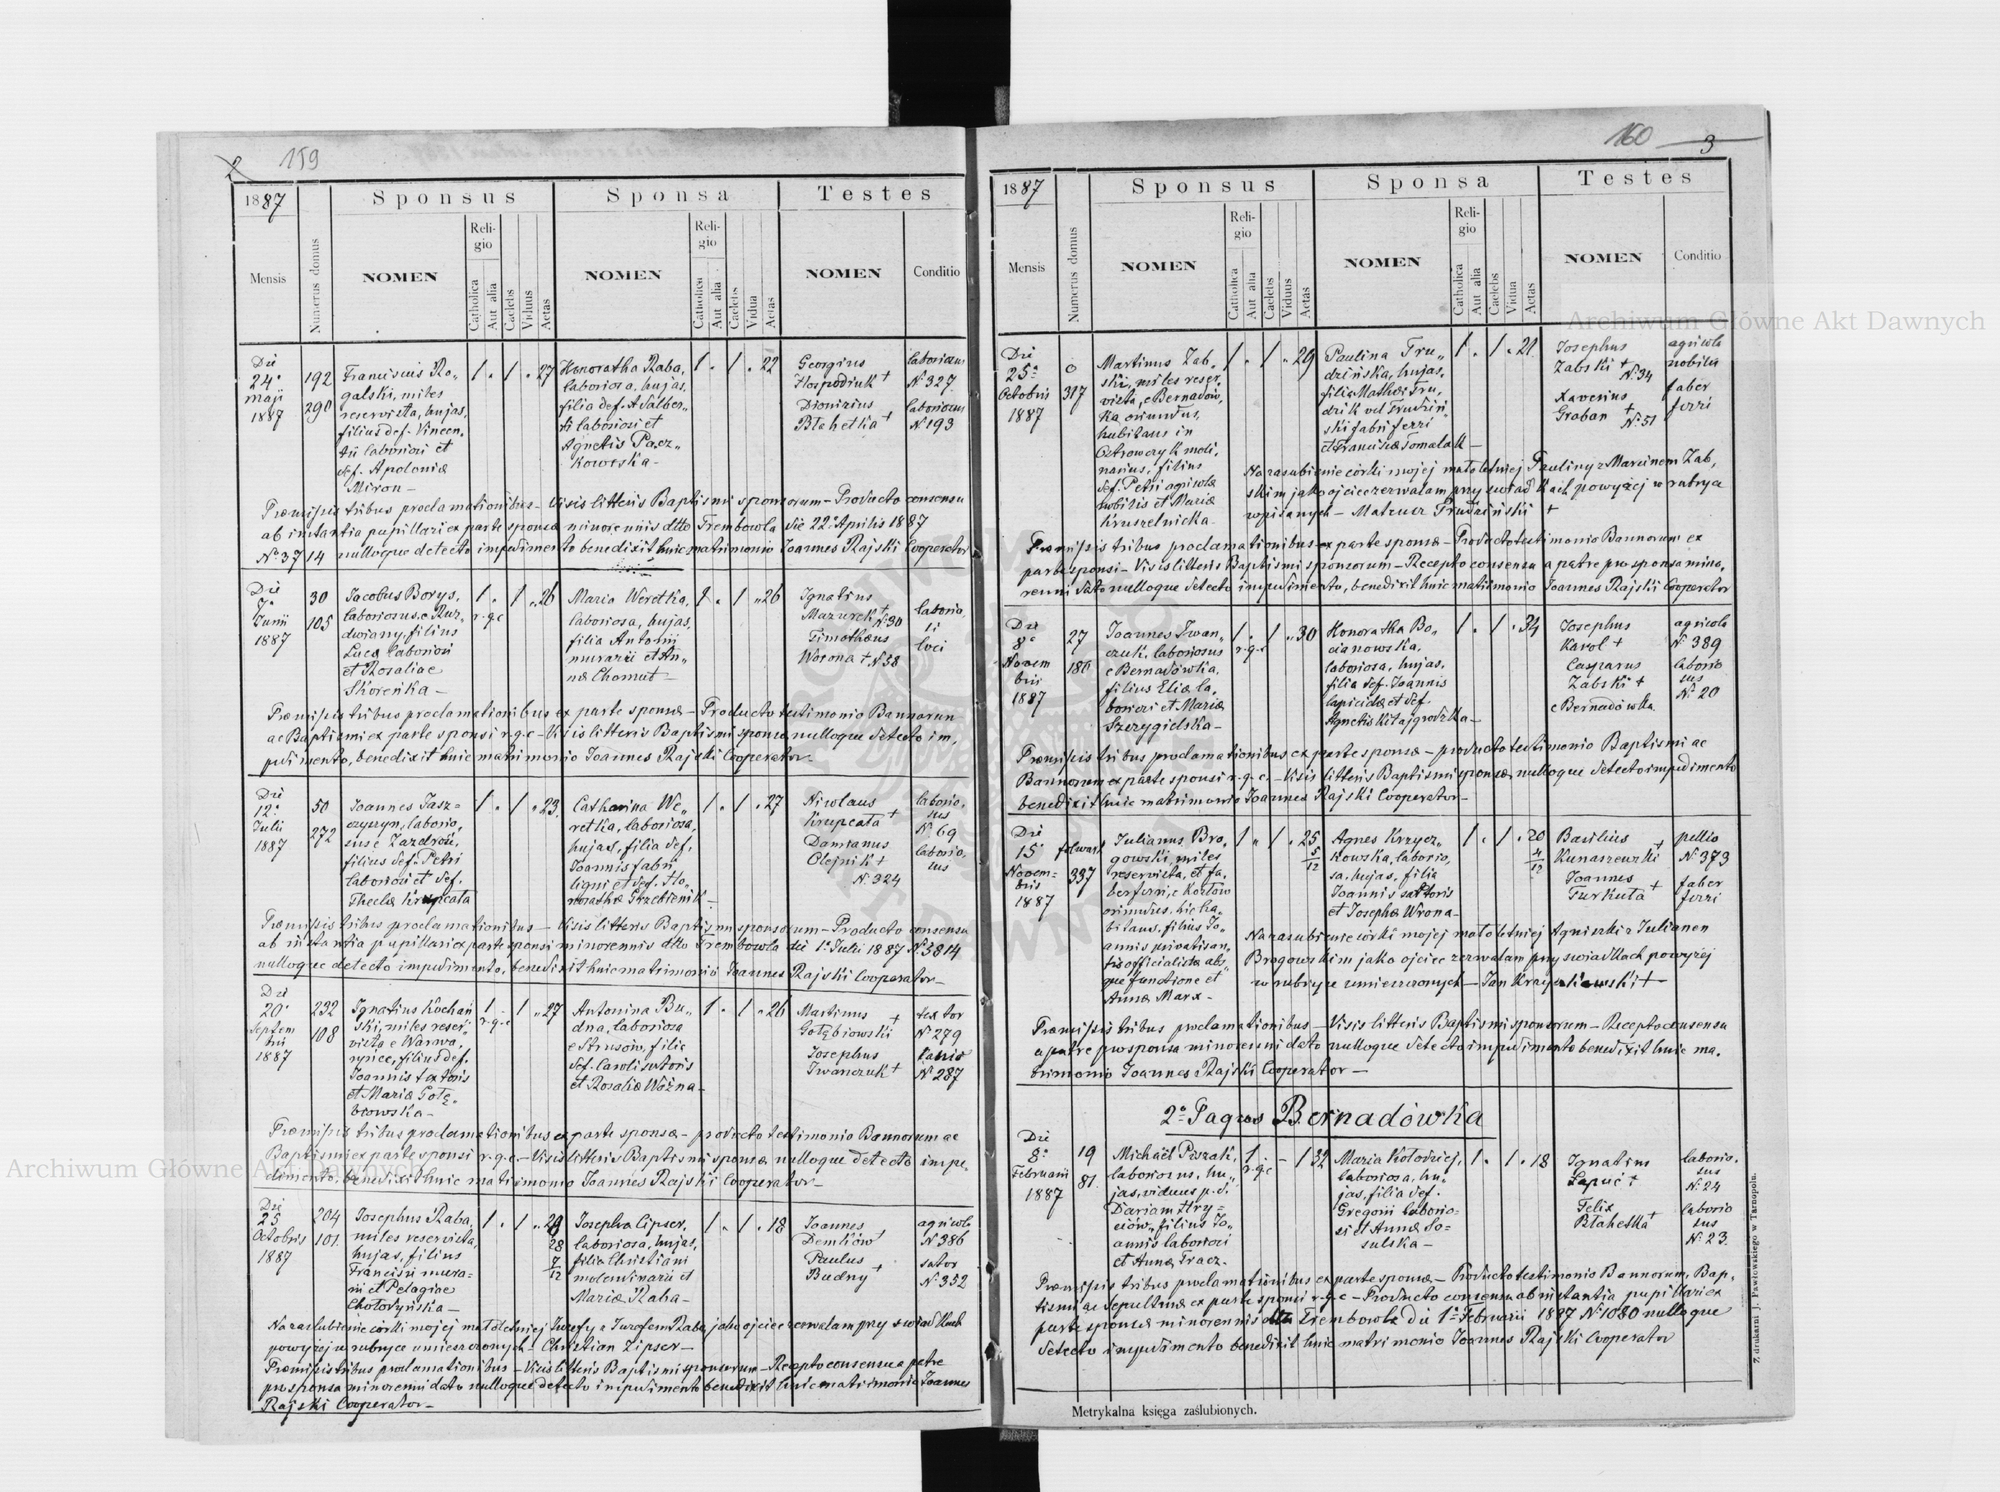 2 159
1887
Sponsus
Sponsa
Testes
Mensis
Numerus domus
NOMEN
Religio
Catholica
Aut alia
Caelebs
Viduus
Aetas
NOMEN
Religio
Catholica
Aut alia
Caelebs
Vidua
Aetas
NOMEN
Conditio
Die
24ª
maji
1887
192
290
Franciscus Ro„
galski, miles
reservista, hujas,
filius def. Vincen„
tii laboriosi et
def. Apoloniæ
Miron —
1 . 1 . 27
Honoratha Raba,
laboriosa, hujas,
filia def. Adalber„
ti laboriosi et
Agnetis Pacz„
kowska —
1 . 1 . 22
Georgius
Hospodiuk +
Dionisius
Błahetka +
laboriosus
N. 327
laboriosus
N. 193
Præmissis tribus proclamationibus — Visis litteris Baptismi sponsorum — Producto consensu
ab instantia pupillari ex parte sponsæ minorennis dtto Trembowla die 22ª Aprilis 1887
Nº 3714 nulloque detecto impedimento benedixit huic matrimonio Joannes Rajski Cooperator
Die
7ª
Junii
1887
30
105
Jacobus Borys,
laboriosus, e Ruz„
dwiany, filius
Lucæ laboriosi
et Rosaliae
Skoreńka —
1 . 1 „ 26
r. g. c
Maria Weretka,
laboriosa, hujas,
filia Antonii
murarii et An„
næ Chomut —
1 . 1 „ 26
Ignatius
Mazurek + N. 30
Timotheus
Worona + N 58
laborio„
si
loci
Præmissis tribus proclamationibus ex parte sponsæ — Producto testimonio Bannorum
ac Baptismi ex parte sponsi r. g. c — Visis litteris Baptismi sponsæ nulloque detecto im„
pedimento, benedixit huic matrimonio Joannes Rajski Cooperator —
Die
12ª
Julii
1887
50
272
Joannes Jasz„
czyszyn, laborio„
sus e Zazdrość,
filius def. Petri
laboriosi et def.
Theclæ Krupcata
1 . 1 . 23
Catharina We„
retka, laboriosa,
hujas, filia def.
Joannis fabri
ligni et def. Ho„
norathæ Grzebieniuk —
1 . 1 . 27
Nicolaus
Krupcata +
Damianus
Olejnik +
N. 324
laborio„
sus
N. 69
laborio„
sus
Præmissis tribus proclamationibus — Visis litteris Baptismi sponsorum — Producto consensu
ab instantia pupillari ex parte sponsi minorennis dtto Trembowla die 1ª Julii 1887 N. 3814
nulloque detecto impedimento, benedixit huic matrimonio Joannes Rajski Cooperator —
Die
20ª
Septem
bris
1887
232
108
Ignatius Kochań
ski, miles reser„
vista e Warwa„
ryńce, filius def.
Joannis textoris
et Mariæ Gołę„
biowska —
1 . 1 „ 27
r. g. c
Antonina Bu„
dna, laboriosa
e Strusów, filia
def. Caroli sutoris
et Rosaliæ Woźna —
1 . 1 . 26
Martinus
Gołębiowski +
Josephus
Iwanczuk +
textor
N 279
N 287
Præmissis tribus proclamationibus ex parte sponsæ — producto testimonio Bannorum ac
Baptismi ex parte sponsi r. g. c. — Visis litteris Baptismi sponsæ nulloque detecto impe„
dimento, benedixit huic matrimonio Joannes Rajski Cooperator —
Die
25
Octobris
1887
204
101.
Josephus Raba,
miles reservista,
hujas, filius
Francisci mura„
rii et Pelagiae
Chołodyńska —
1 . 1 „
28
7
12
Josepha Cipser,
laboriosa, hujas,
filia Christiani
molendinarii et
Mariæ Raba —
1 . 1 . 18
Joannes
Demków +
Paulus
Budny +
agricola
N 386
sator
N. 352
Na zaślubienie córki mojej małoletniej Józefy z Józefem Raba, jako ojciec zezwalam przy świadkach
powyżej w rubryce umieszczonych — Christian Zipser —
Præmissis tribus proclamationibus — Visis litteris Baptismi sponsorum — Recepto consensu a patre
pro sponsa minorenni dato nulloque detecto impedimento benedixit huic matrimonio Joannes
Rajski Cooperator —
160 3
1887
Sponsus
Sponsa
Testes
Mensis
Numerus domus
NOMEN
Religio
Catholica
Aut alia
Caelebs
Viduus
Aetas
NOMEN
Religio
Catholica
Aut alia
Caelebs
Vidua
Aetas
NOMEN
Conditio
Die
25ª
Octobris
1887
0
317
Martinus Zab„
ski, miles reser„
vista, e Bernadów„
ka oriundus,
habitans in
Ostrowczyk moli„
narius, filius
def. Petri agricolæ
nobilis et Mariæ
Kruszelnicka.
1 . 1 . 29
Paulina Tru„
dzińska, hujas,
filia Mathæi Tru„
dzik vel Trudziń„
ski fabri ferri
et Franciscæ Tomalak —
1 . 1 . 21
Josephus
Zabski +
N. 34
Xaverius
Graban +
N. 51
agricola
nobilis
faber
ferri
Na zaślubienie córki mojej małoletniej Pauliny z Marcinem Zab„
skim jako ojciec zezwalam przy świadkach powyżej w rubryce
wpisanych — Mateusz Trudziński +
Præmissis tribus proclamationibus ex parte sponsæ — Producto testimonio Bannorum ex
parte sponsi — Visis litteris Baptismi sponsorum — Recepto consensu a patre pro sponsa mino„
renni dato nulloque detecto impedimento, benedixit huic matrimonio Joannes Rajski Cooperator
Die
8ª
Novem
bris
1887
27
180
Joannes Iwan„
czuk, laboriosus
e Bernadówka,
filius Eliæ la„
boriosi et Mariæ
Szczygielska —
1 . 1 „ 30
r. g. c
Honoratha Bo„
cianowska,
laboriosa, hujas,
filia def. Joannis
lapicidæ et def.
Agnetis Kitajgrodzka —
1 . 1 . 34
Josephus
Karol +
Casparus
Zabski +
e Bernadówka
agricola
Nº 389
laborio
sus
Nº 20
Præmissis tribus proclamationibus ex parte sponsæ — producto testimonio Baptismi ac
Bannorum ex parte sponsi r. g. c. — Visis litteris Baptismi sponsæ nulloque detecto impedimento
benedixit huic matrimonio Joannes Rajski Cooperator —
Die
15ª
Novem„
bris
1887
folwark
337
Julianus Bro„
gowski, miles
reservista, et fa„
ber ferri, e Kozłów
oriundus, hic ha„
bitans, filius Jo„
annis privatisan„
tis officialistæ abs„
que functione et
Annæ Marx —
1 „ 1 . 25
5
12
Agnes Krzycz„
kowska, laborio„
sa, hujas, filia
Joannis sartoris
et Josephæ Wrona —
1 . 1 . 20
4
12
Basilius +
Kunaszewski
Joannes
Turkuta +
pellio
Nº 373
faber
ferri
Na zaślubienie córki mojej małoletniej Agnieszki z Julianem
Brogowskim jako ojciec zezwalam przy świadkach powyżej
w rubryce umieszczonych — Jan +
Præmissis tribus proclamationibus — Visis litteris Baptismi sponsorum — Recepto consensu
a patre pro sponsa minorenni dato nulloque detecto impedimento benedixit huic ma„
trimonio Joannes Rajski Cooperator —
2º Pagus Bernadówka
Die
8ª
Februarii
1887
19
81.
Michaël Piszak,
laboriosus, hu„
jas, viduus p. d.
Dariam Hry„
ciów, filius Jo„
annis laboriosi
et Annæ Tracz.
1 . — 1 32
r. g. c
Maria Kołodziej,
laboriosa, hu„
jas, filia def.
Gregorii laborio„
si et Annæ So„
sulska —
1 . 1 . 18
Ignatius
Łapuć +
Felix
Błahetka +
laborio„
sus
N. 24
laborio
sus
N. 23.
Præmissis tribus proclamationibus ex parte sponsæ — Producto testimonio Bannorum, Bap„
tismi ac sepulturæ ex parte sponsi r. g. c — Producto consensu ab instantia pupillari ex
parte sponsæ minorennis dtto Trembowla die 1ª Februarii 1887 Nº 1080 nulloque
detecto impedimento benedixit huic matrimonio Joannes Rajski Cooperator
Metrykalna księga zaślubionych.
Z drukarni J. Pawłowskiego w Tarnopolu.
Archiwum Główne Akt Dawnych
Archiwum Główne Akt Dawnych